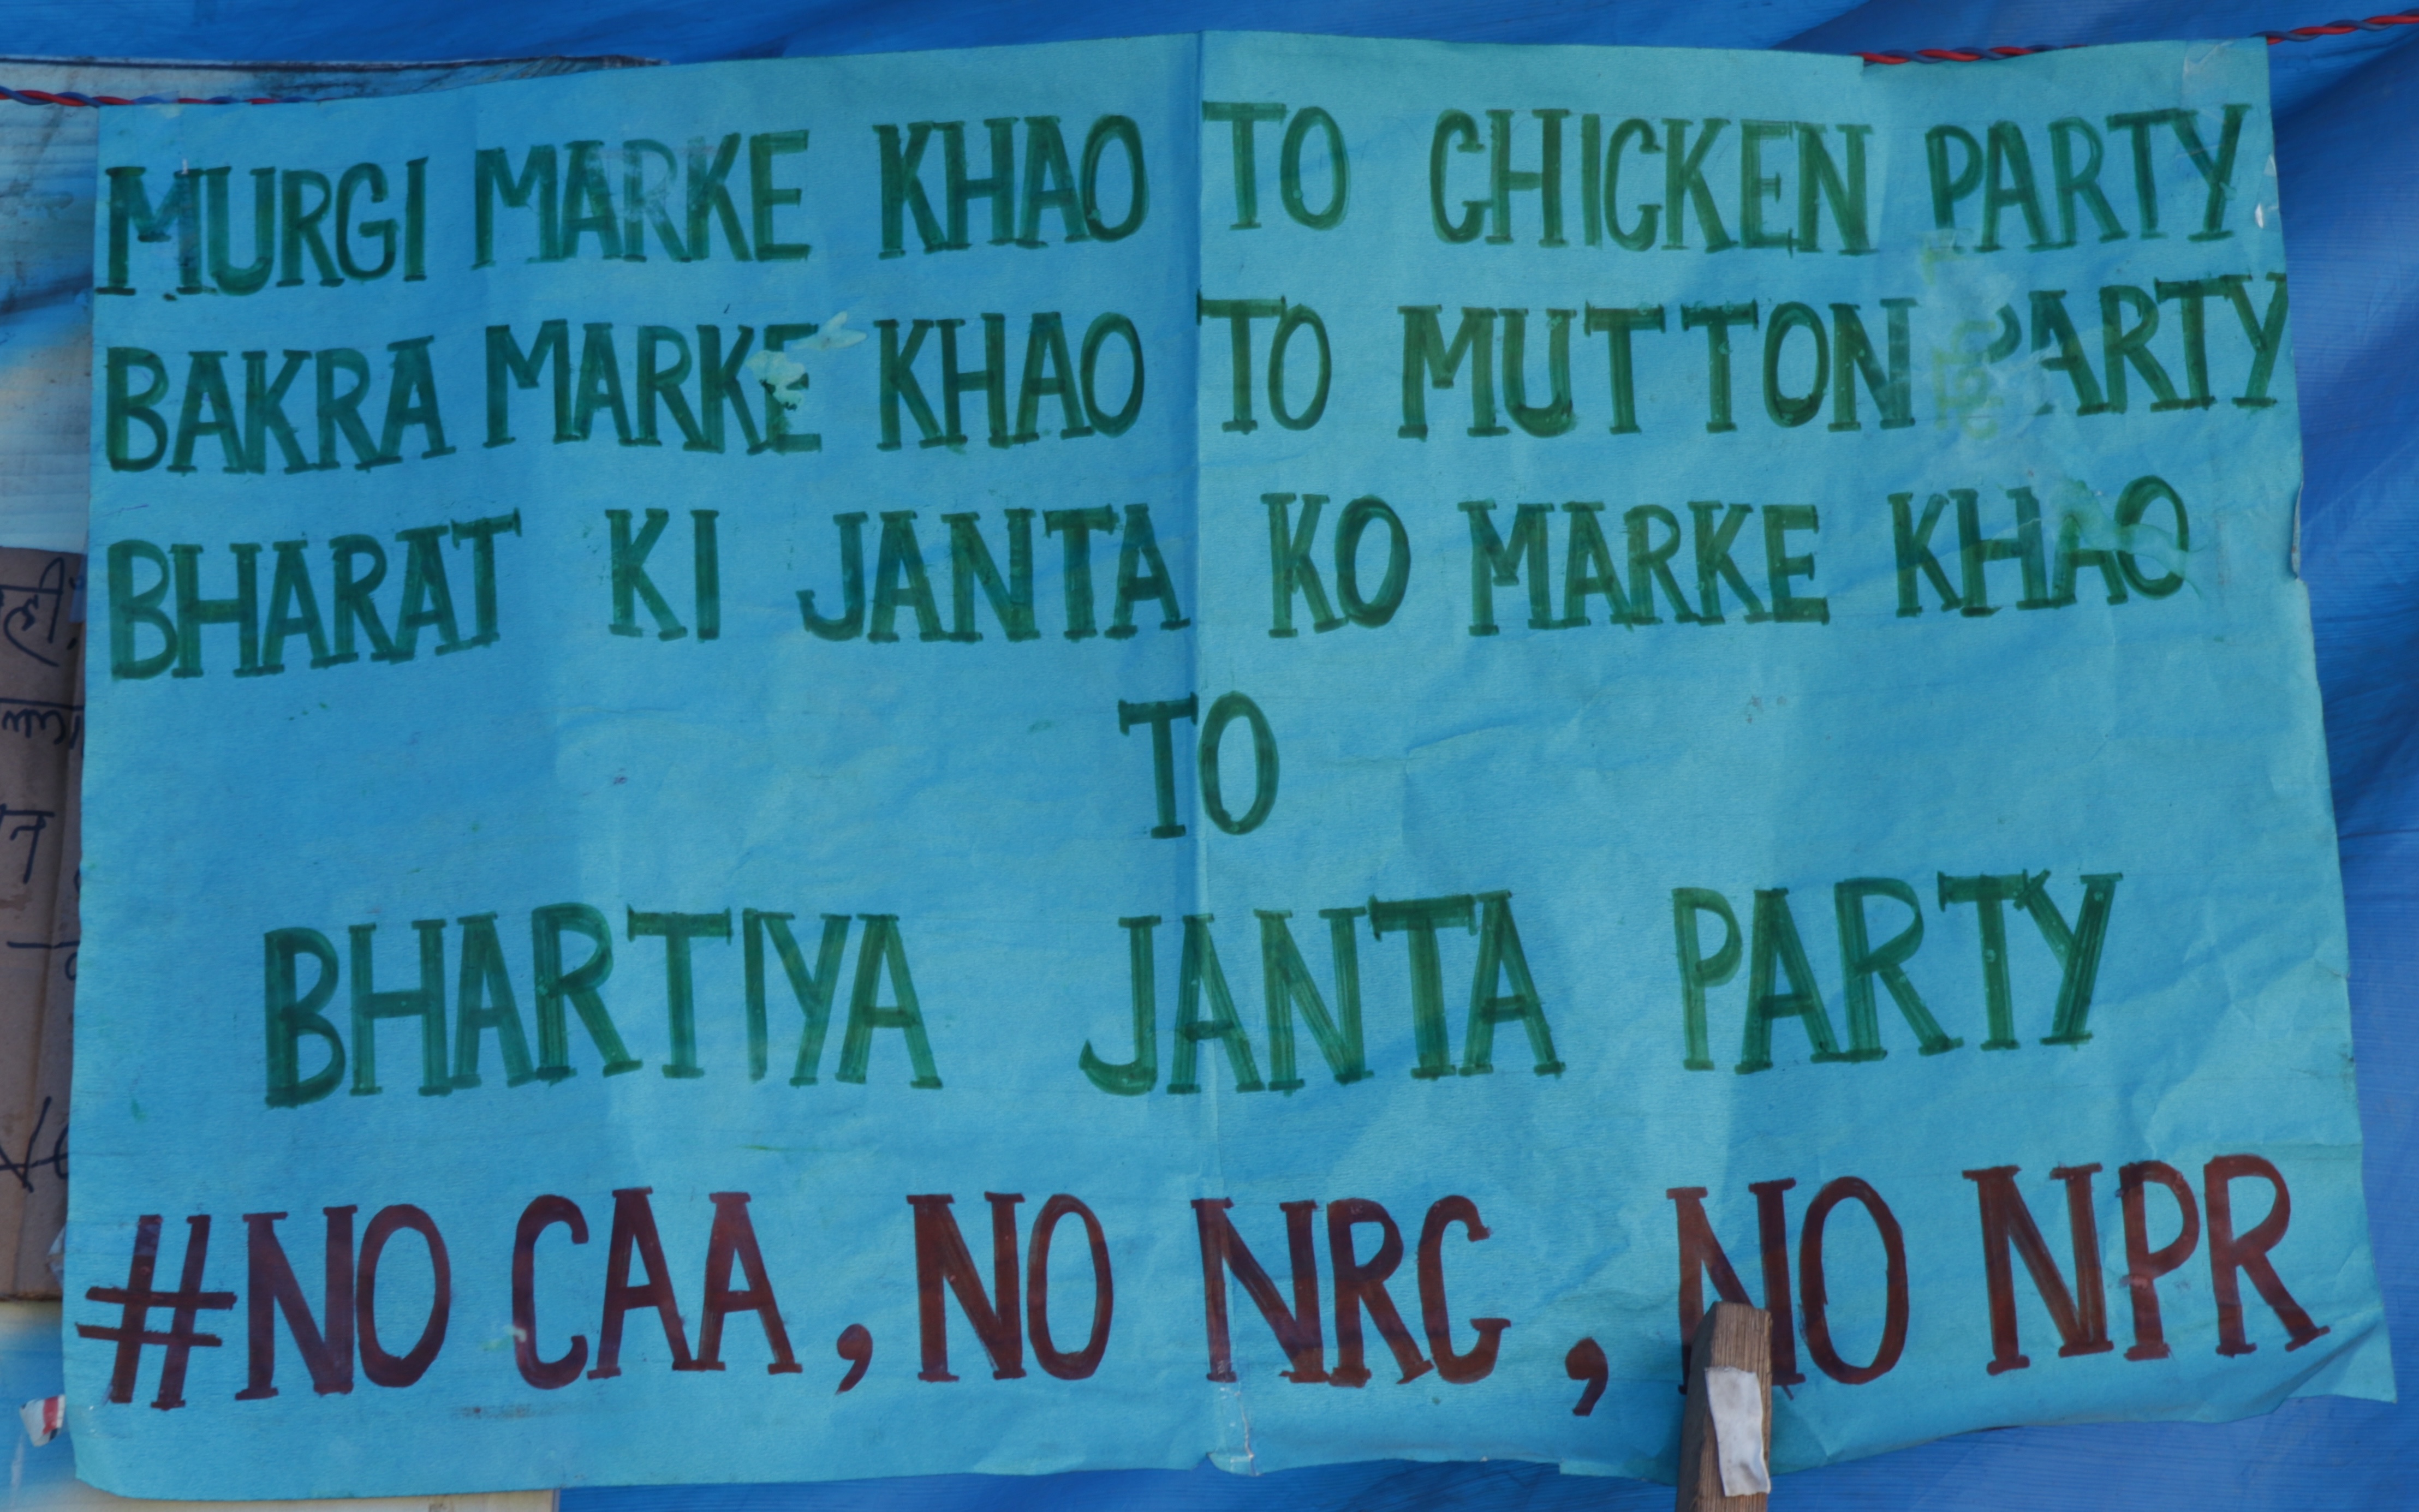 MURGI MARKE KHAO TO CHICKEN PARTY
BAKRA MARKE KHAO TO MUTTON PARTY
BHARAT KI JANTA KO MARKE KHAO
TO
BHARTIYA JANTA PARTY
#NO CAA, NO NRC, NO NPR